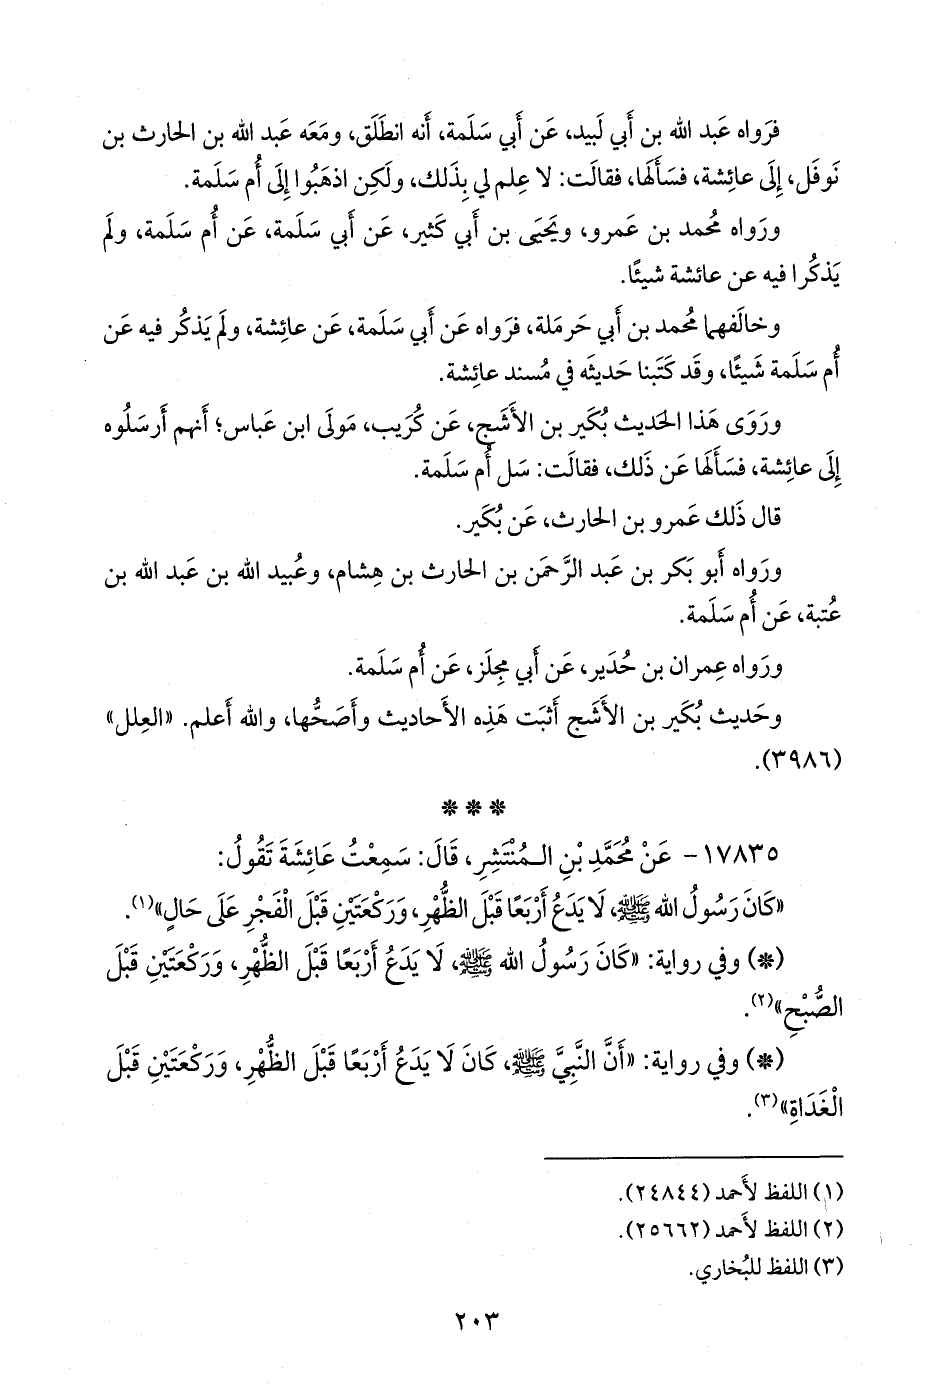 فرَواه عَبد الله بن أَبي لَبيد، عَن أَبي سَلَمة، أَنه انطَلَق، ومَعَه عَبد الله بن الحارث بن
نَوفَل، إِلَى عائِشة، فسَأَلَها، فقالَت: لا عِلم لي بِذَلك، ولَكِن اذهَبُوا إِلَى أُم سَلَمة.
ورَواه مُحمد بن عَمرو، ويَحيَى بن أَبي كَثير، عَن أَبي سَلَمة، عَن أُم سَلَمة، ولَم
يَذكُرا فيه عن عائشة شيئًا.
وخالَفهما مُحمد بن أَبي حَرمَلة، فرَواه عَن أَبي سَلَمة، عَن عائِشة، ولَم يَذكُر فيه عَن
أُم سَلَمة شَيئًا، وقَد كَتَبنا حَديثَه في مُسند عائِشة.
ورَوَى هَذا الحَديث بُكَير بن الأَشَج، عَن كُرَيب، مَولَى ابن عَباس؛ أَنهم أَرسَلُوه
إِلَى عائِشة، فسَأَلَها عَن ذَلك، فقالَت: سَل أُم سَلَمة.
قال ذَلك عَمرو بن الحارث، عَن بُكَير.
ورَواه أَبو بَكر بن عَبد الرَّحمَن بن الحارث بن هِشام، وعُبيد الله بن عَبد الله بن
عُتبة، عَن أُم سَلَمة.
ورَواه عِمران بن حُدَير، عَن أَبي مِجلَز، عَن أُم سَلَمة.
وحَديث بُكَير بن الأَشَج أَثبَت هَذِه الأَحاديث وأَصَحُّها، والله أَعلم. «العِلل»
(٣٩٨٦).
* * *
١٧٨٣٥- عَنْ مُحَمَّدِ بْنِ المُنْتَشِرِ، قَالَ: سَمِعْتُ عَائِشَةَ تَقُولُ:
«كَانَ رَسُولُ الله ﷺ، لَا يَدَعُ أَرْبَعًا قَبْلَ الظُّهْرِ، وَرَكْعَتَيْنِ قَبْلَ الْفَجْرِ عَلَى حَالٍ»(١).
(*) وفي رواية: «كَانَ رَسُولُ الله ﷺ، لَا يَدَعُ أَرْبَعًا قَبْلَ الظُّهْرِ، وَرَكْعَتَيْنِ قَبْلَ
الصُّبْحِ»(٢).
(*) وفي رواية: «أَنَّ النَّبِيَّ ﷺ، كَانَ لَا يَدَعُ أَرْبَعًا قَبْلَ الظُّهْرِ، وَرَكْعَتَيْنِ قَبْلَ
الْغَدَاةِ»(٣).
(١) اللفظ لأَحمد (٢٤٨٤٤).
(٢) اللفظ لأَحمد (٢٥٦٦٢).
(٣) اللفظ للبُخاري.
٢٠٣